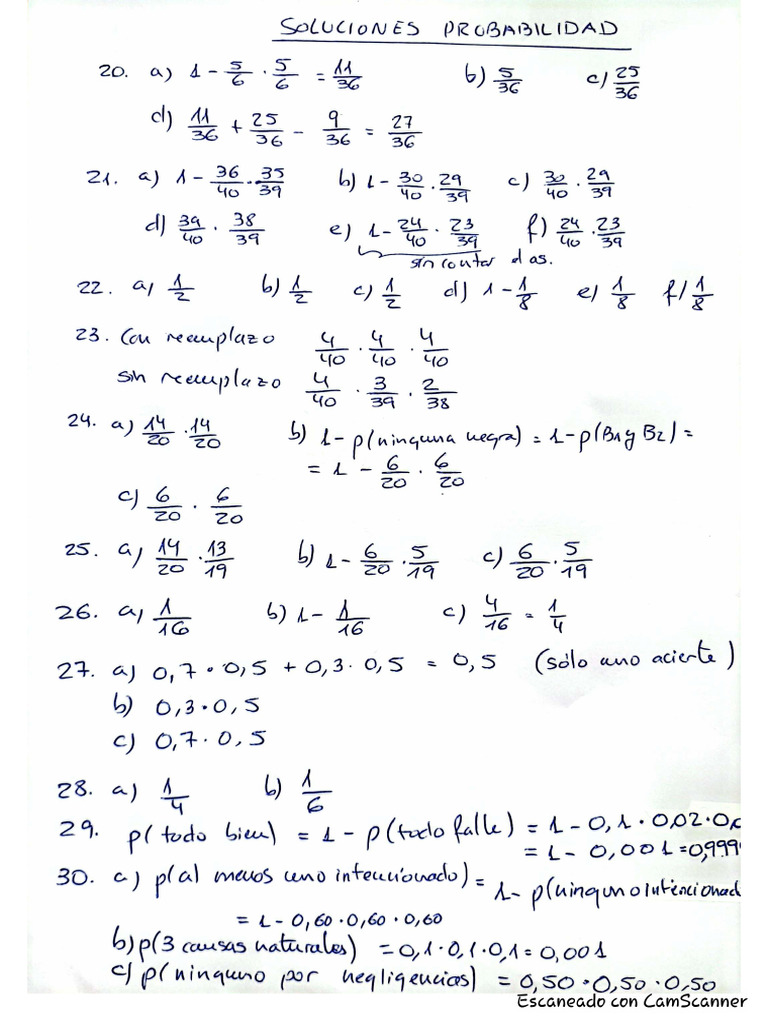 SOLUCIONES PROBABILIDAD
20. a) 1 - 5/6 · 5/6 = 11/36 b) 5/36 c) 25/36
d) 11/36 + 25/36 - 9/36 = 27/36
21. a) 1 - 36/40 · 35/39 b) 1 - 30/40 · 29/39 c) 30/40 · 29/39
d) 39/40 · 38/39 e) 1 - 24/40 · 23/39 f) 24/40 · 23/39
sin contar el as.
22. a) 1/2 b) 1/2 c) 1/2 d) 1 - 1/8 e) 1/8 f) 1/8
23. Con reemplazo 4/40 · 4/40 · 4/40
sin reemplazo 4/40 · 3/39 · 2/38
24. a) 14/20 · 14/20 b) 1 - p(ninguna negra) = 1 - p(B1 y B2) =
= 1 - 6/20 · 6/20
c) 6/20 · 6/20
25. a) 14/20 · 13/19 b) 1 - 6/20 · 5/19 c) 6/20 · 5/19
26. a) 1/16 b) 1 - 1/16 c) 4/16 = 1/4
27. a) 0,7 · 0,5 + 0,3 · 0,5 = 0,5 (sólo uno acierte)
b) 0,3 · 0,5
c) 0,7 · 0,5
28. a) 1/4 b) 1/6
29. p(todo bien) = 1 - p(todo falle) = 1 - 0,1 · 0,02 · 0,
= 1 - 0,001 = 0,999
30. a) p(al menos uno intencionado) = 1 - p(ninguno intencionad
= 1 - 0,60 · 0,60 · 0,60
b) p(3 causas naturales) = 0,1 · 0,1 · 0,1 = 0,001
c) p(ninguno por negligencias) = 0,50 · 0,50 · 0,50
Escaneado con CamScanner